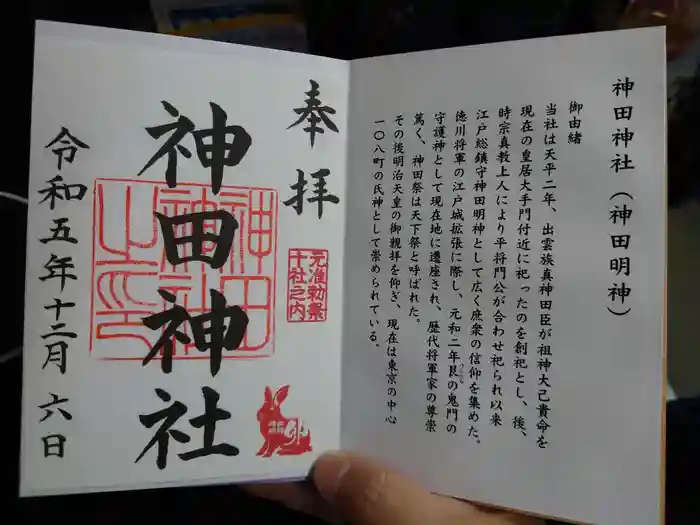 神田神社（神田明神）
御由緒
当社は天平二年、出雲族真神田臣が祖神大己貴命を
現在の皇居大手門付近に祀ったのを創祀とし、後、
時宗真教上人により平将門公が合わせ祀られ以来
江戸総鎮守神田明神として広く庶衆の信仰を集めた。
徳川将軍の江戸城拡張に際し、元和二年艮の鬼門の
守護神として現在地に遷座され、歴代将軍家の尊崇
篤く、神田祭は天下祭と呼ばれた。
その後明治天皇の御親拝を仰ぎ、現在は東京の中心
一〇八町の氏神として崇められている。
奉拝
元准勅祭
十社之内
神田神社
神田
神社
之印
令和五年十二月六日